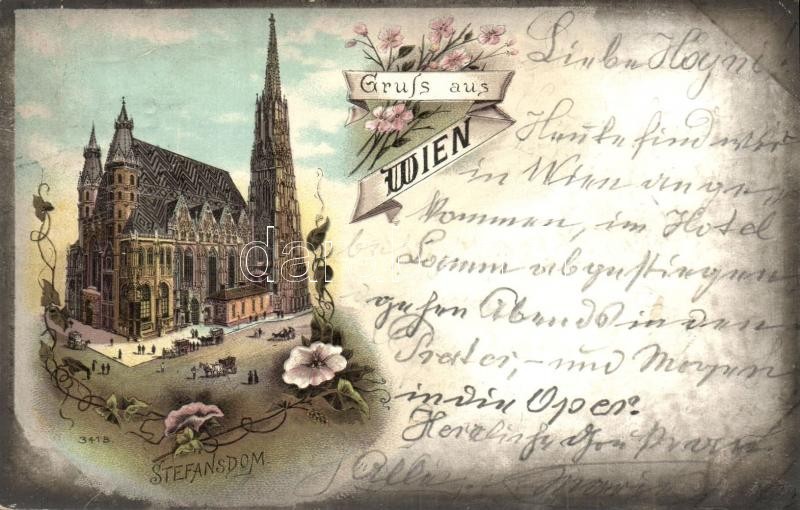 Gruſs aus
WIEN
Liebe
Heute sind wir
in Wien ange
kommen, im Hotel
Lamm abgestiegen
gehen Abends in den
Prater, - und Morgen
in die Oper.
Herzliche
Alle
3418
STEFANSDOM.